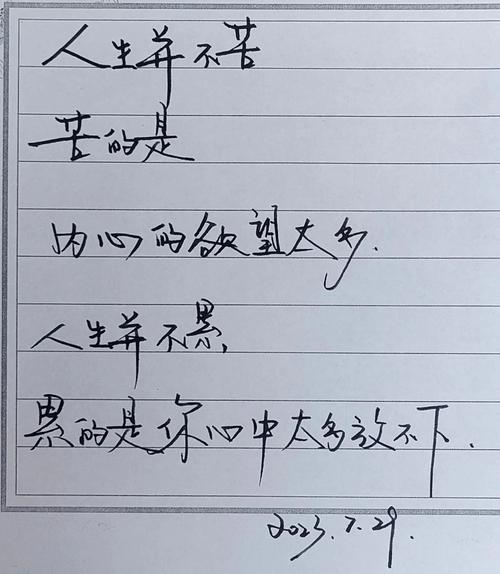 人生并不苦
苦的是
内心的欲望太多.
人生并不累,
累的是你心中太多放不下.
2023.7.29.